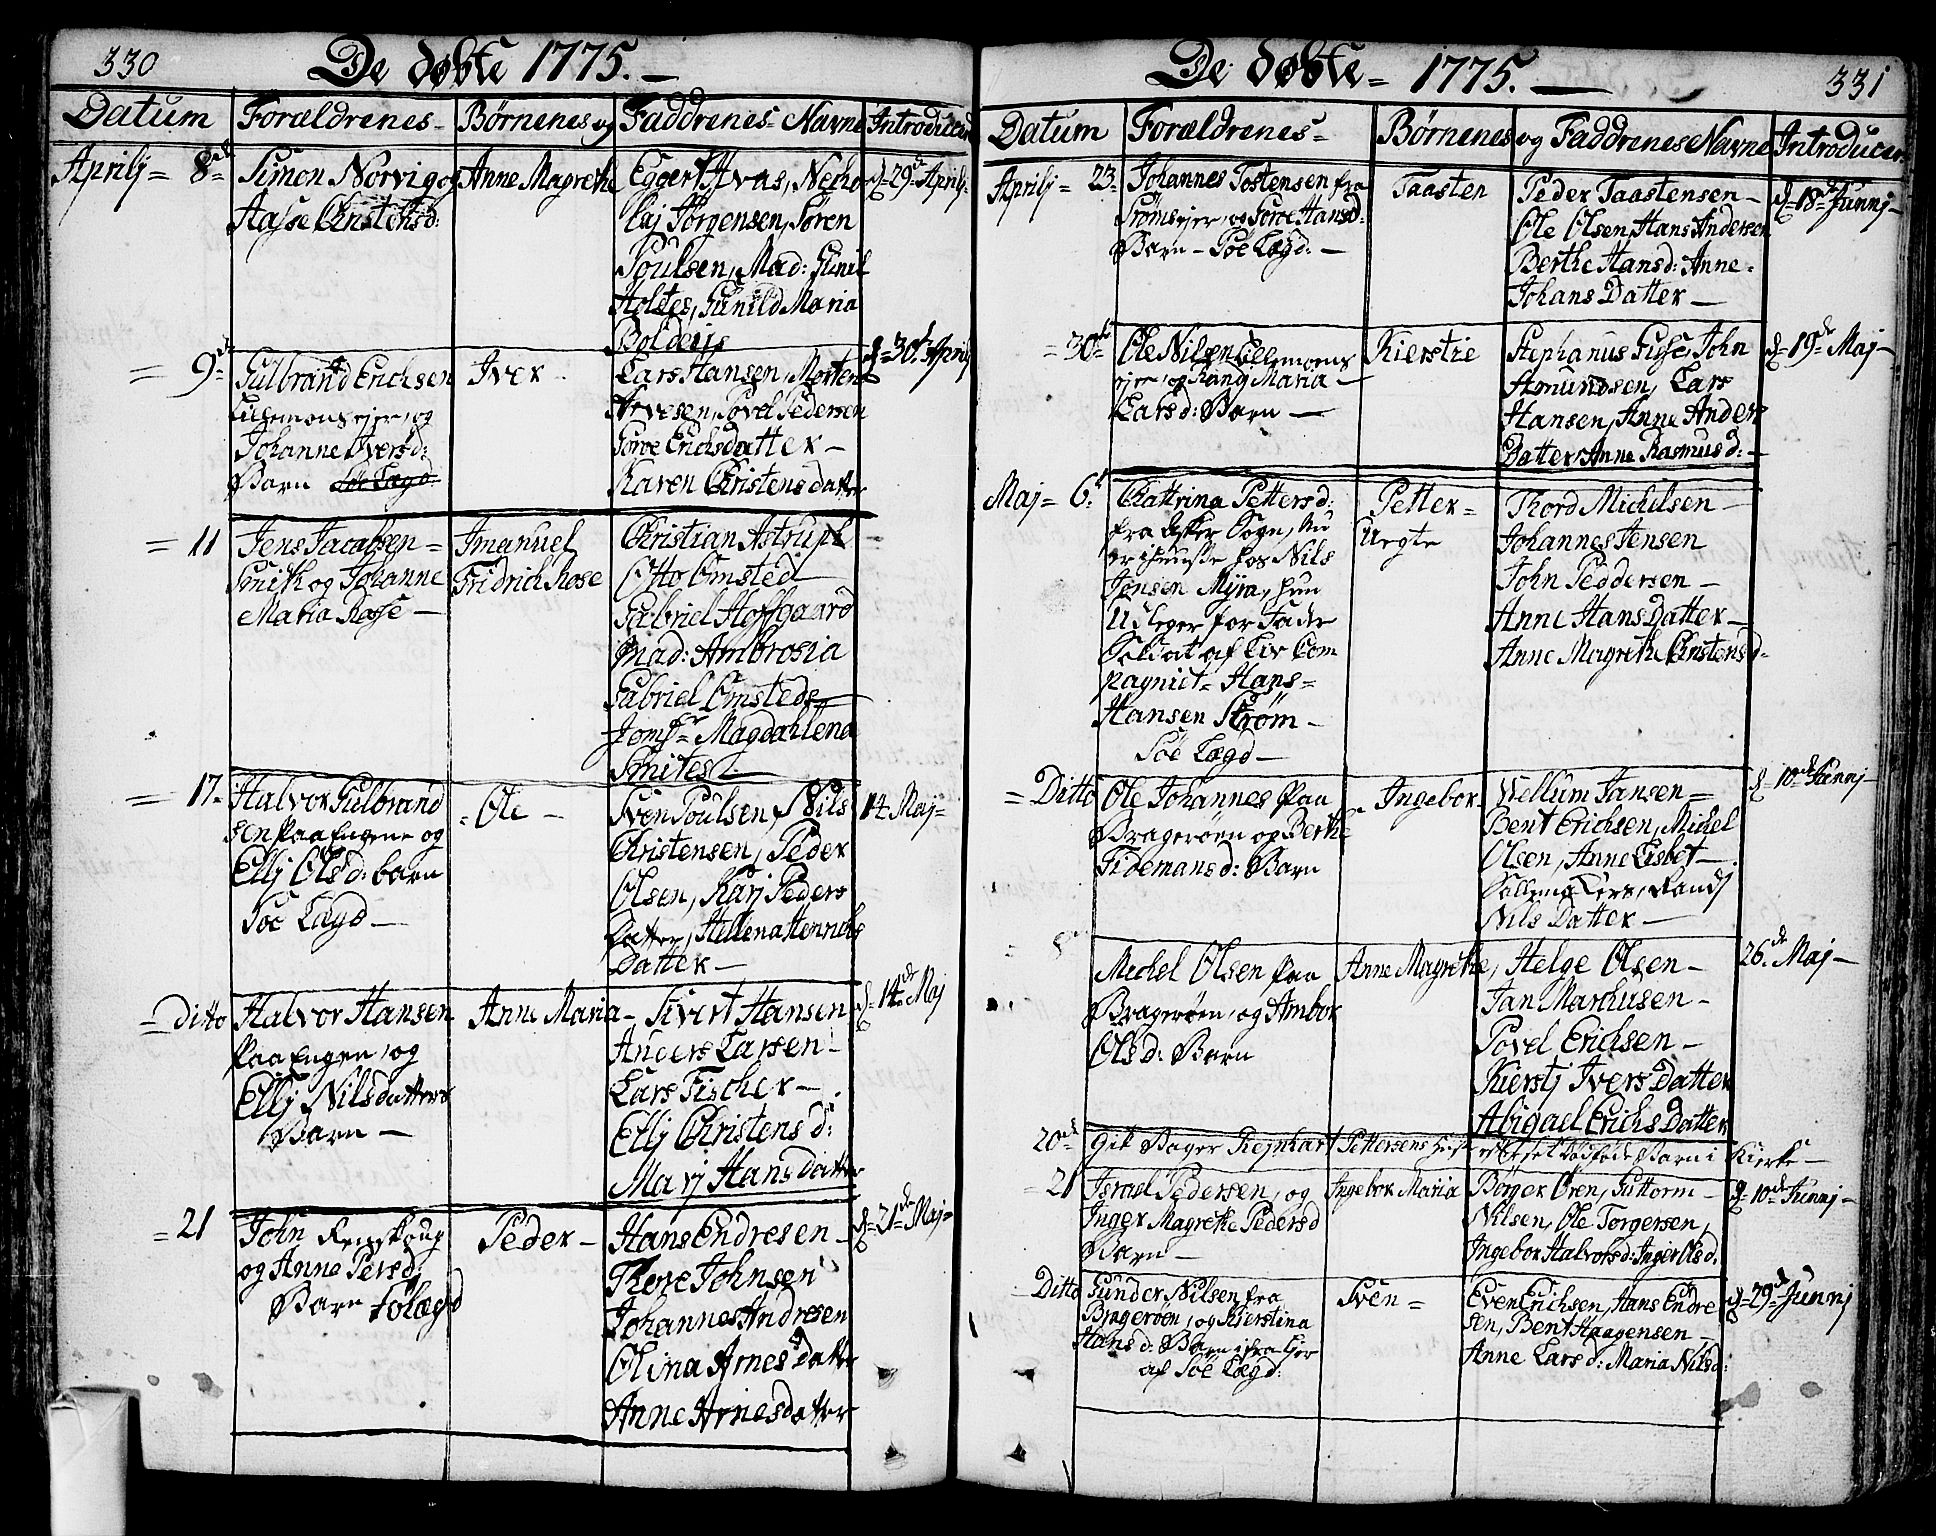 330
De døbte 1775. —
Datum Forældrenes- Børnenes og Faddrenes Navne Introducer
Aprilj = 8de
Simon Norvig og
Aasse Christensd:
Anne Magrethe
Eggert Avas, Necho
laj Jørgensen, Søren
Poulsen, Mad: Gunil
Holstes, Gunild Maria
Bolderis
d. 29de Aprilj
= 9de
Gulbrand Erichsen
Lillemons ejer, og
Johanne Iversd:
Barn Søe Lægd
Iver
Lars Hansen, Morten
Arvesen, Povel Pedersen
Sørve Erichsdatter —
Karen Christens datter
d. 30te Aprilj
= 11
Jens Jacobsen =
Smith og Johanne
Maria Rosse —
Imanuel
Fridrich Rose
Christian Astrup
Otto Omsted
Gabriel Hoffgaard
Mad: Ambrosia
Gabriel Omsteds
Jomfr Magdahlena
Smitest.
= 17
Halvor Gulbrand
sen paa Engene og
Ellj Olsd: barn
Søe Lægd —
= Ole —
Sven Poulsen, Nils
Christensen, Peder
Olsen, Karj Peders
Datter, Hellena Henrichs
Datter —
14 Maj =
= Ditto
Halvor Hansen
paa Engen, og
Ellj Nilsdatters
Barn —
Anne Maria —
Sivert Hansen
Anders Larsen —
Lars Fischer —
Ellj Christens d:
Marj Hans Datter
d. 14de Maj
= 21
John Renskoug
og Anne Persd:
Barn Sølægd
Peder —
Hans Endresen —
Thore Johnsen
Johannes Andresen
Olina Arnes datter
Anne Arnesdatter
d. 21de Maj =
331
De døbte = 1775. —
Datum Forældrenes = Børnenes og Faddrenes Navne Introducer
Aprilj = 23
Johannes Tostensen fra
Strømsejer, og Sørve Hansd:
Barn — Søe Lægd: —
Taasten
Peder Taastensen —
Ole Olsen, Hans Andersen
Berthe Hansd: Anne =
Johans Datter —
d. 18de Junnj —
= 30te
Ole Nilsen Lillemons
ejer, og Rang Maria —
Larsd: Barn —
Kierstie
Stephanus Gusse, John
Amundsen, Lars
Hansen, Anne Anders
Datter, Anne Rasmusd: —
d. 19de Maj —
Maj = 6te
Chattrina Pettersd:
fra Asker Sogn, nu
er tienisste hos Nils
Jensen Myra, hun
Udleger for Fader
Soldat af Liv Com
pagniet = Hans =
Hansen Strøm —
Søe Lægd —
Petter =
Uegte
Thord Michelsen —
Johannes Jensen
John Peddersen —
Anne Hans Datter —
Anne Magrethe Christens d =
= Ditto
Ole Johannes paa
Bragerøen og Berthe
Tidemansd: Barn
Ingebor
Wellum Jansen —
Bent Erichsen, Michel
Olsen, Anne Lisbet —
Randj
Nils Datter —
d. 10de Junnj —
8
Michel Olsen paa
Bragerøen, og Ambor
Olsd: Barn
Anne Magrethe,
Helge Olsen —
Jan Marchusen —
Povel Erichsen —
Kierstj Ivers Datter
Abigael Erichs Datter
26de Maj —
20de
Gik Bager Rejnhart Pettersens efter det Dødføde Barn i Kierke —
= 21
Israel Pedersen, og
Inger Magrethe Pedersd
Barn —
Ingebor Maria
Børger Øren, Guttorm —
Nilsen, Ole Torgersen,
Ingebor Halvorsd: Inger Olsd:
d. 10de Junnj —
= Ditto
Gunder Nilsen fra
Bragerøen, og Kierstina
Hans d: Barn
af Søe Lægd:
Sven =
Even Erichsen, Hans Endre
sen, Bent Haagensen —
Anne Larsd: Maria Nilsd:
d. 29de Junnj